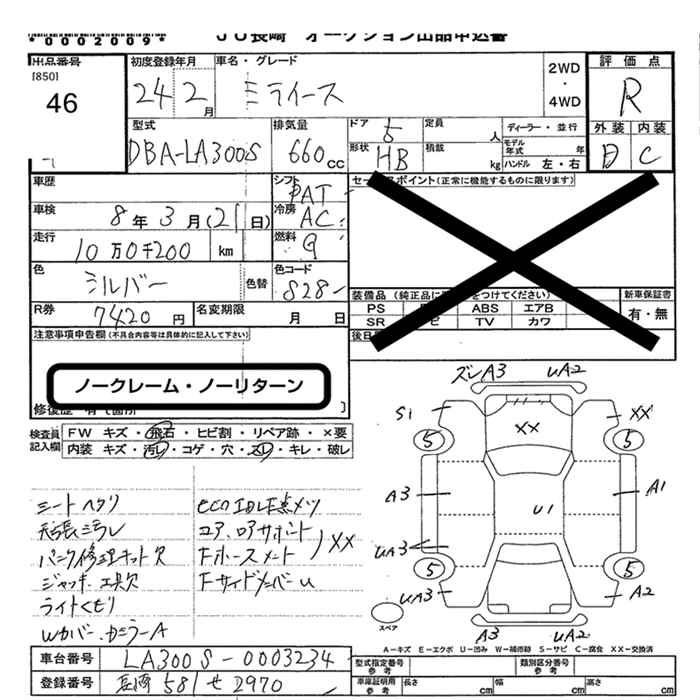 *0002009* JU長崎 オークション出品申込書
出品番号 初度登録年月 車名・グレード 2WD ・ 4WD 評価点
[850]
46 24 2月 ミライース R
型式 排気量 ドア 5 定員 人 ディーラー・並行 外装 内装
DBA-LA300S 660cc 形状 HB 積載 kg モデル年式 年 ハンドル 左・右 D C
車歴 シフト FAT セールスポイント(正常に機能するものに限ります)
車検 8年3月(21日) 冷房 AC
走行 10万0千200 km 燃料 G
色 シルバー 色替 色コード S28
装備品 (純正品に をつけてください) 新車保証書
PS ABS エアB 有・無
SR TV カワ
R券 7420円 名変期限 月 日
注意事項申告欄(不具合内容等は具体的に記入して下さい) 後日
ノークレーム・ノーリターン
修復歴 有(箇所 )
検査員記入欄 FW キズ・飛石・ヒビ割・リペア跡・×要
内装 キズ・汚レ・コゲ・穴・スレ・キレ・破レ
ズレA3 UA2
S1 XX XX
5 5
A3 U1 A1
UA3
5 5
UA3 A2
スペア
A3 UA2
シートヘタリ
天張ミラレ
パンク修理キット欠
ジャッキ・工具欠
ライトくもり
Wカバー、カミラーA
eco IDLE点メツ
コア、ロアサポート
Fホースメント XX
FサイドメンバーU
A-キズ E-エクボ U-凹み W-補修跡 S-サビ C-腐食 XX-交換済
車台番号 LA300S-0003234 型式指定番号 参考 類別区分番号 参考
登録番号 長崎 581 せ 2970 車庫証明用 参考 長さ cm 幅 cm 高さ cm